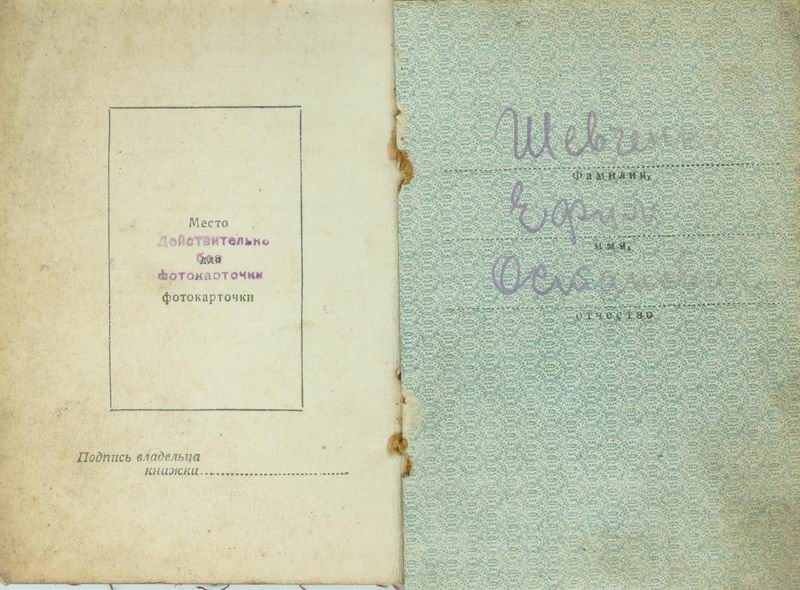 Место
Действительно
без
для
фотокарточки
фотокарточки
Подпись владельца
книжки
Шевченко
фамилия,
Ефим
имя,
Остапович
отчество